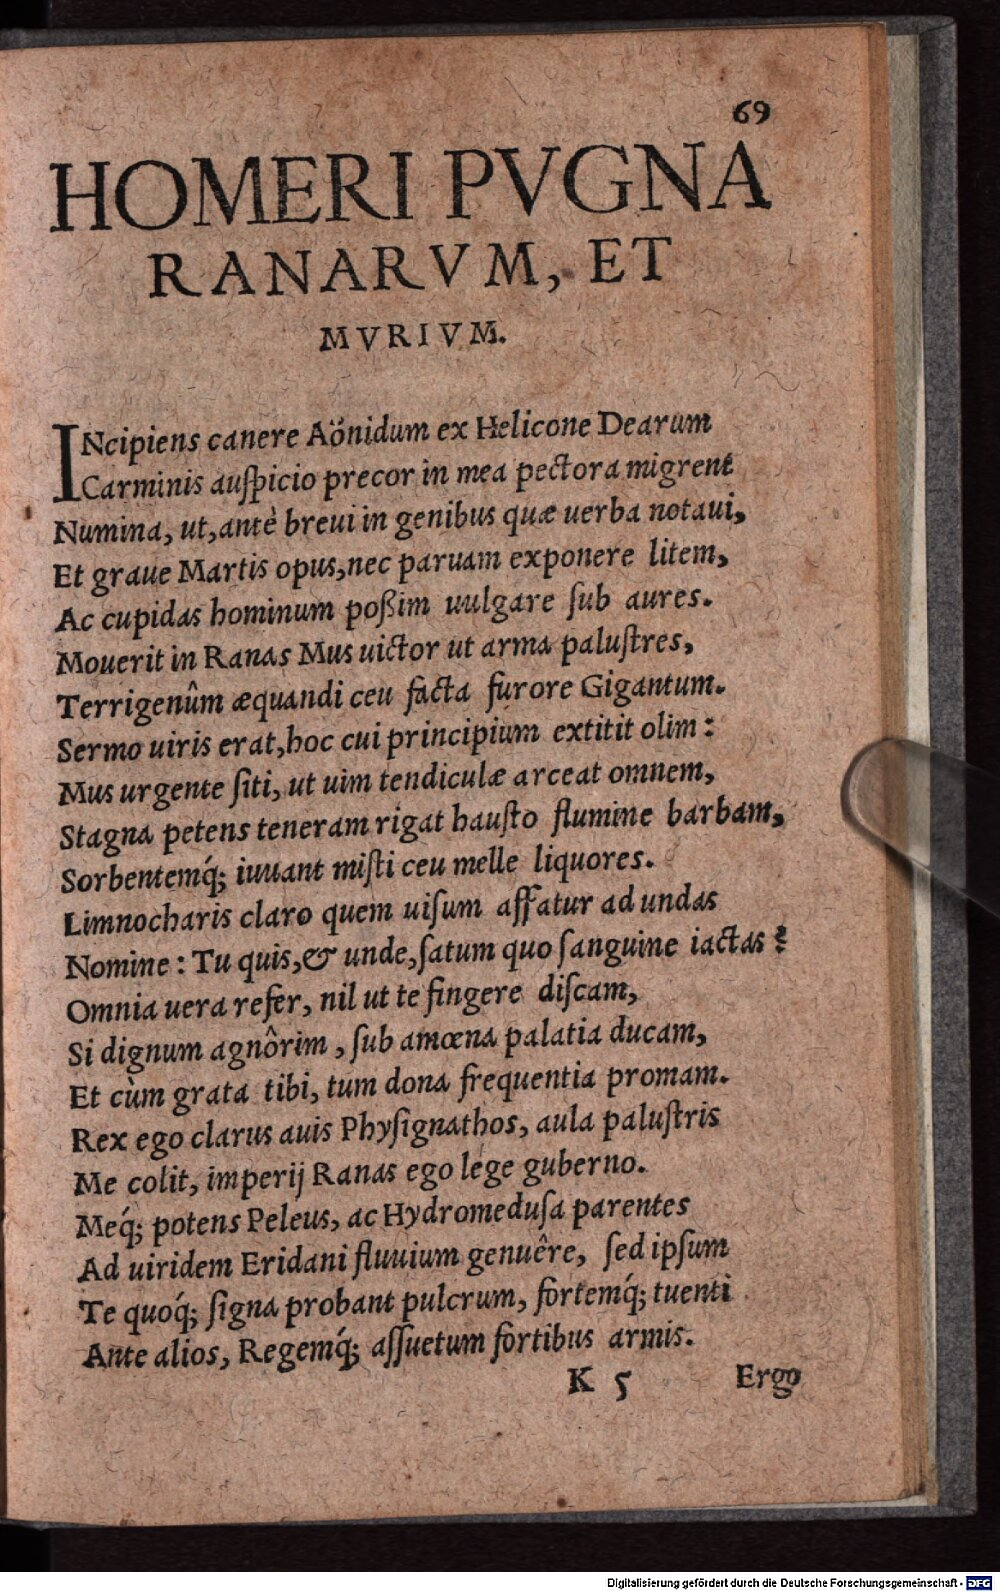 69
HOMERI PVGNA
RANARVM, ET
MVRIVM.
INcipiens canere Aönidum ex Helicone Dearum
Carminis auſpicio precor in mea pectora migrent
Numina, ut, antè breui in genibus quæ uerba notaui,
Et graue Martis opus, nec paruam exponere litem,
Ac cupidas hominum poßim uulgare ſub aures.
Mouerit in Ranas Mus uictor ut arma paluſtres,
Terrigenûm æquandi ceu facta furore Gigantum.
Sermo uiris erat, hoc cui principium extitit olim:
Mus urgente ſiti, ut uim tendiculæ arceat omnem,
Stagna petens teneram rigat hauſto flumine barbam,
Sorbentemq́; iuuant miſti ceu melle liquores.
Limnocharis claro quem uiſum affatur ad undas
Nomine: Tu quis, & unde, ſatum quo ſanguine iactas?
Omnia uera refer, nil ut te fingere diſcam,
Si dignum agnôrim, ſub amœna palatia ducam,
Et cùm grata tibi, tum dona frequentia promam.
Rex ego clarus auis Phyſignathos, aula paluſtris
Me colit, imperij Ranas ego lege guberno.
Meq́; potens Peleus, ac Hydromeduſa parentes
Ad uiridem Eridani fluuium genuêre, ſed ipſum
Te quoq́; ſigna probant pulcrum, fortemq́; tuenti
Ante alios, Regemq́; aſſuetum fortibus armis.
K 5 Ergo
Digitalisierung gefördert durch die Deutsche Forschungsgemeinschaft - DFG